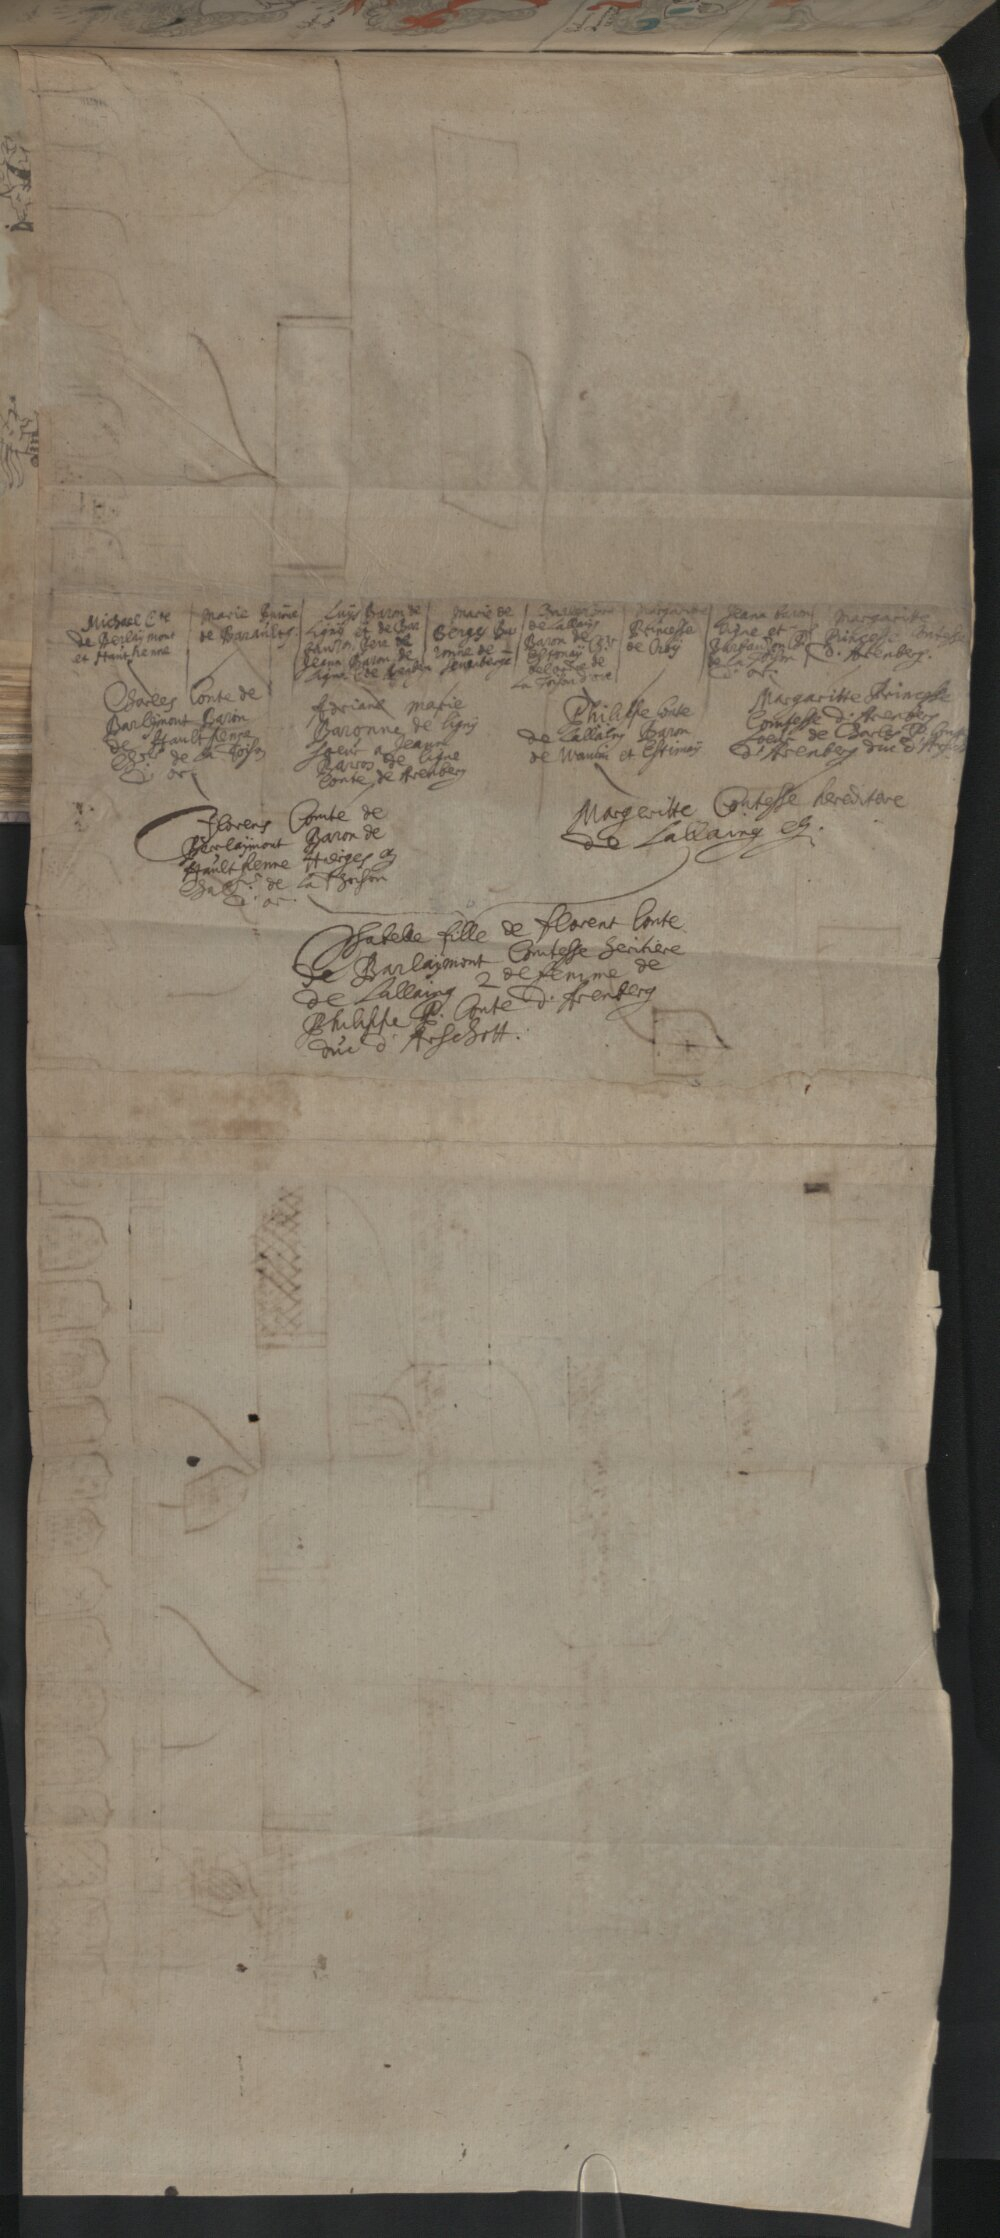 Michael Cte
de Berlaimont
et Haultkenne
Marie
de Barault
Luys Baron de
Ligny et de Bar
Pere de
Jeann Baron de
Ligne
Marie de
Berges Ba
ronne de
de Lallaing
Baron de
Estonaij
de
La Toison d'ore
Margarite
Princesse
de Croy
Jeann Baron
Ligne et
Barbanson
de La Toison
d'or.
Margaritte
Princesse Comtesse
d'Arenberg.
Charles Conte de
Barlaymont Baron
de Haultkenne
Chlr de La Toison
d'or
Adriane Marie
Baronne de Ligny
soeur a Jeann
Baron de Ligne
Conte de Arenberg
Philippe Conte
de Lallaing Baron
de Wauin et Estimaij
Margaritte Princesse
Comtesse d'Arenberg
soeur de Charles P. Comte
d'Arenberg duc d'Arschot
Florens Comte de
Berrlaijmont Baron de
Haultkenne Hierges
de La Thoison
d'or.
Margeritte Contesse hereditare
de Lallaing
Isabelle fille de Florent Conte
de Barlaijmont Comtesse heritiere
de Lallaing 2 de Femme de
Philippe P. Conte d'Arenberg
duc d'Arschott.